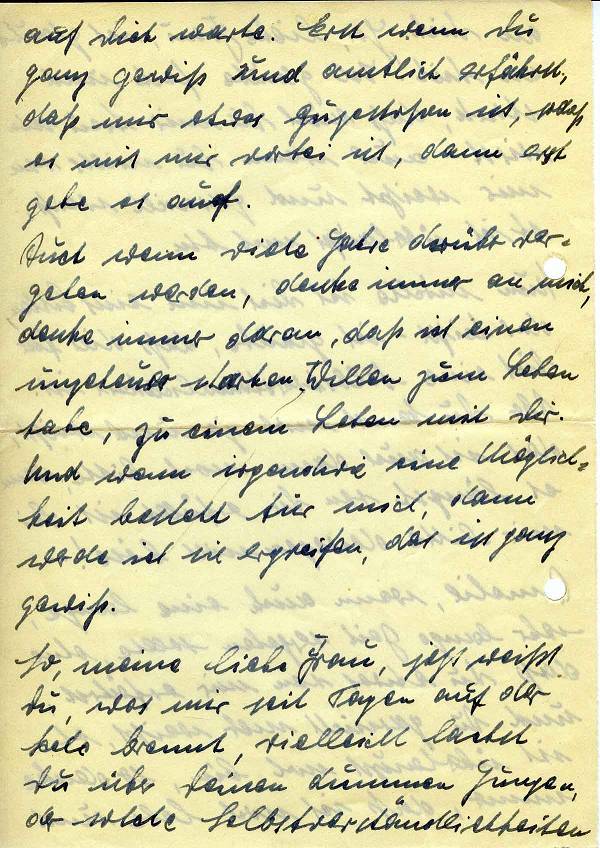 auf Dich warte. Erst wenn Du
ganz gewiß und amtlich erfährst,
daß mir etwas zugestoßen ist, daß
es mit mir vorbei ist, dann erst
gebe es auf.
Auch wenn viele Jahre darüber ver-
gehen werden, denke immer an mich,
denke immer daran, daß ich einen
ungeheuer starken Willen zum Leben
habe, zu einem Leben mit Dir.
Und wenn irgendwie eine Möglich-
keit besteht für mich, dann
werde ich sie ergreifen, das ist ganz
gewiß.
So, meine liebe Frau, jetzt weißt
Du, was mir seit Tagen auf der
Seele brennt, vielleicht lachst
Du über Deinen dummen Jungen,
der solche Selbstverständlichkeiten